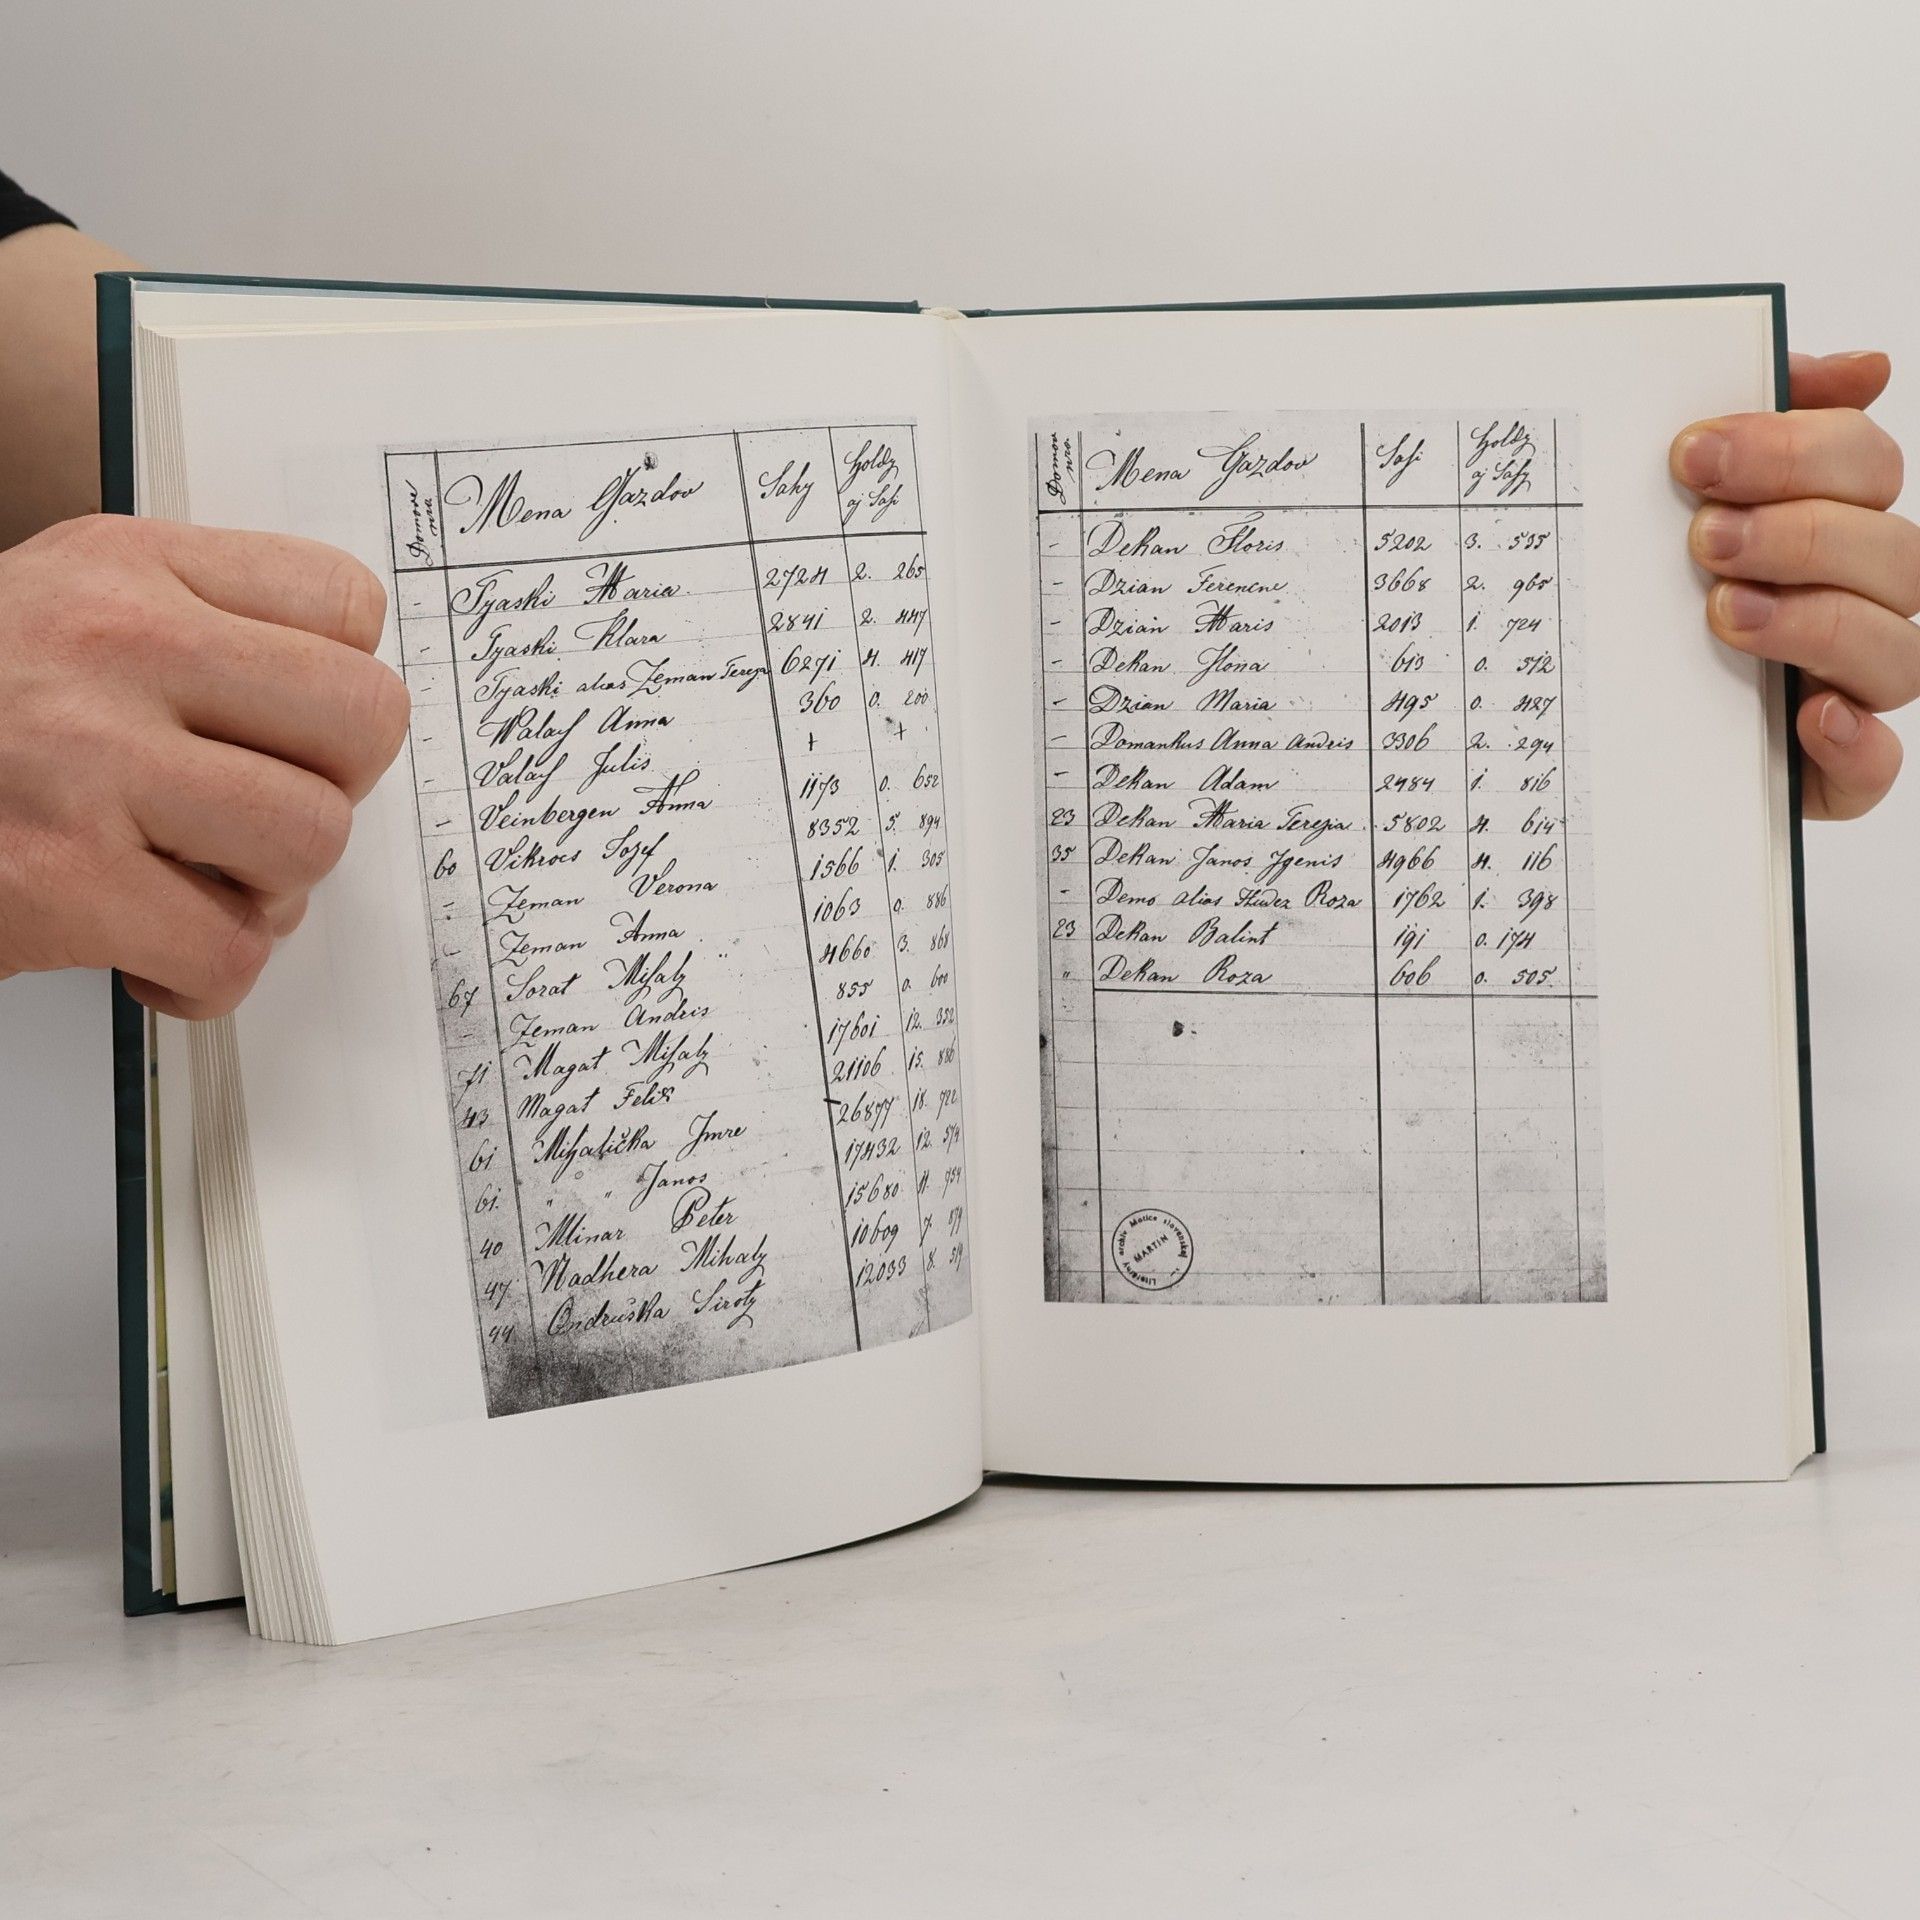 Domove nro. Mena Gazdov Sahy Holdy aj Sahi
- Tyaski Maria. 2724 2. 265
- Tyaski Klara 2841 2. 447
- Tyaski alias Zeman Tereza 6271 4. 417
- Walach Anna 360 0. 200
- Valach Julis + +
- Veinbergen Anna 1173 0. 652
60 Vikrocs Jozef 8352 5. 894
- Zeman Verona 1566 1. 305
- Zeman Anna 1063 0. 886
67 Sorat Mihaly 4660 3. 868
- Zeman Andris 855 0. 600
71 Magat Mihaly 17601 12. 352
43 Magat Felix 21106 15. 886
61 Mihalička Imre 26877 18. 722
61. " " Janos 17432 12. 574
40 Mlinar Peter 15680 11. 954
47 Nadhera Mihaly 10609 7. 879
44 Ondruška Siroty 12033 8. 519
Domov nro. Mena Gazdov Sahi Holdy aj Sahy
- Dekan Floris 5202 3. 535
- Dzian Ferencne 3668 2. 965
- Dzian Maris 2013 1. 724
- Dekan Ilona 613 0. 512
- Dzian Maria 495 0. 427
- Domankus Anna Andris 3306 2. 294
- Dekan Adam 2484 1. 816
23 Dekan Maria Terezia 5802 4. 614
35 Dekan Janos Igenis 4966 4. 116
- Demo alias Roza 1762 1. 398
23 Dekan Balint 191 0. 174
" Dekan Roza 606 0. 505
Literárny archív Matice slovenskej
MARTIN